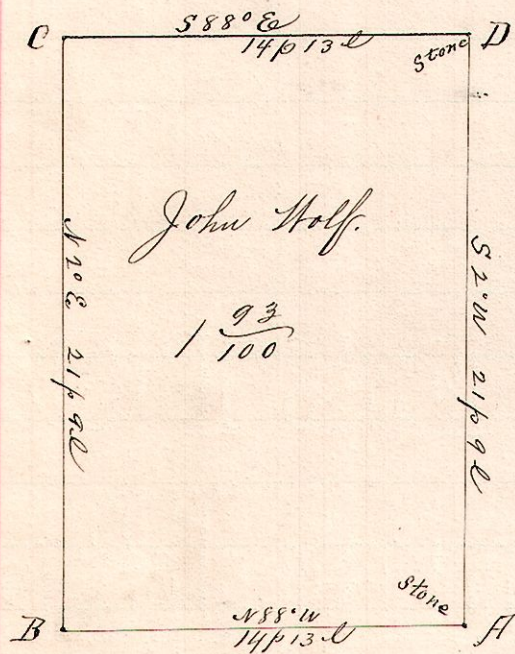 S 88° E
C D
14 p 13 l
Stone
John Wolf.
1 93/100
N 2° E 21 p 9 l
S 2° W 21 p 9 l
Stone
N 88° W
B A
14 p 13 l